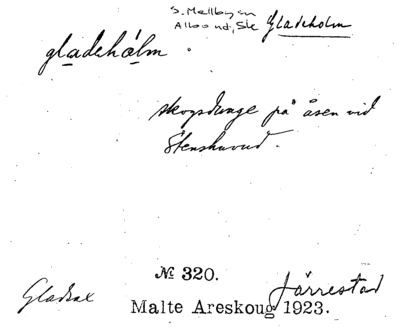 S. Mellbyn
Albo hd, Sk Gladeholm
gladehólm.
skogsdunge på åsen vid
Stenshuvud.
№ 320.
Gladsax Järrestad
Malte Areskoug 1923.